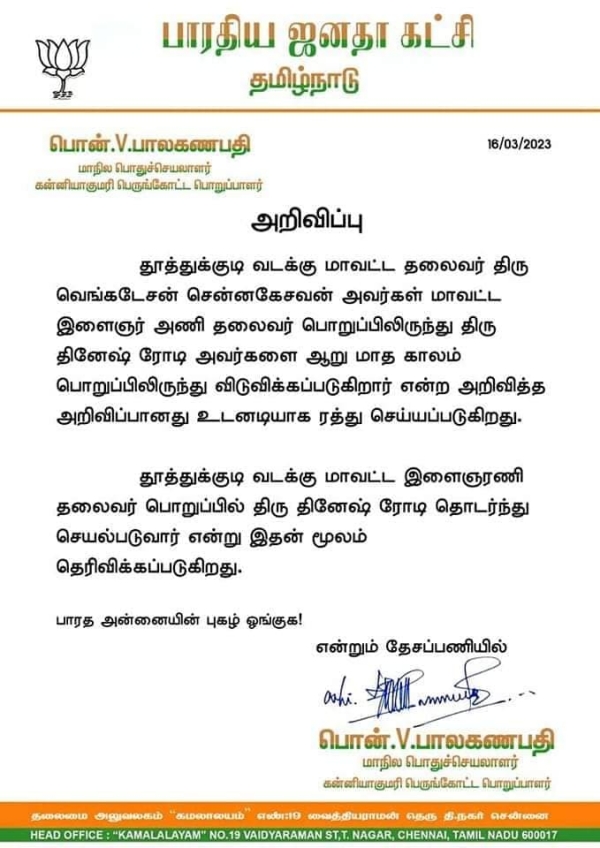 பாரதிய ஜனதா கட்சி
தமிழ்நாடு
பொன்.V.பாலகணபதி
மாநில பொதுச்செயலாளர்
கன்னியாகுமரி பெருங்கோட்ட பொறுப்பாளர்
16/03/2023
அறிவிப்பு
தூத்துக்குடி வடக்கு மாவட்ட தலைவர் திரு
வெங்கடேசன் சென்னகேசவன் அவர்கள் மாவட்ட
இளைஞர் அணி தலைவர் பொறுப்பிலிருந்து திரு
தினேஷ் ரோடி அவர்களை ஆறு மாத காலம்
பொறுப்பிலிருந்து விடுவிக்கப்படுகிறார் என்ற அறிவித்த
அறிவிப்பானது உடனடியாக ரத்து செய்யப்படுகிறது.
தூத்துக்குடி வடக்கு மாவட்ட இளைஞரணி
தலைவர் பொறுப்பில் திரு தினேஷ் ரோடி தொடர்ந்து
செயல்படுவார் என்று இதன் மூலம்
தெரிவிக்கப்படுகிறது.
பாரத அன்னையின் புகழ் ஓங்குக!
என்றும் தேசப்பணியில்
பொன்.V.பாலகணபதி
மாநில பொதுச்செயலாளர்
கன்னியாகுமரி பெருங்கோட்ட பொறுப்பாளர்
தலைமை அலுவலகம் "கமலாலயம்" எண்:19 வைத்தியராமன் தெரு தி.நகர் சென்னை
HEAD OFFICE : "KAMALALAYAM" NO.19 VAIDYARAMAN ST,T. NAGAR, CHENNAI, TAMIL NADU 600017